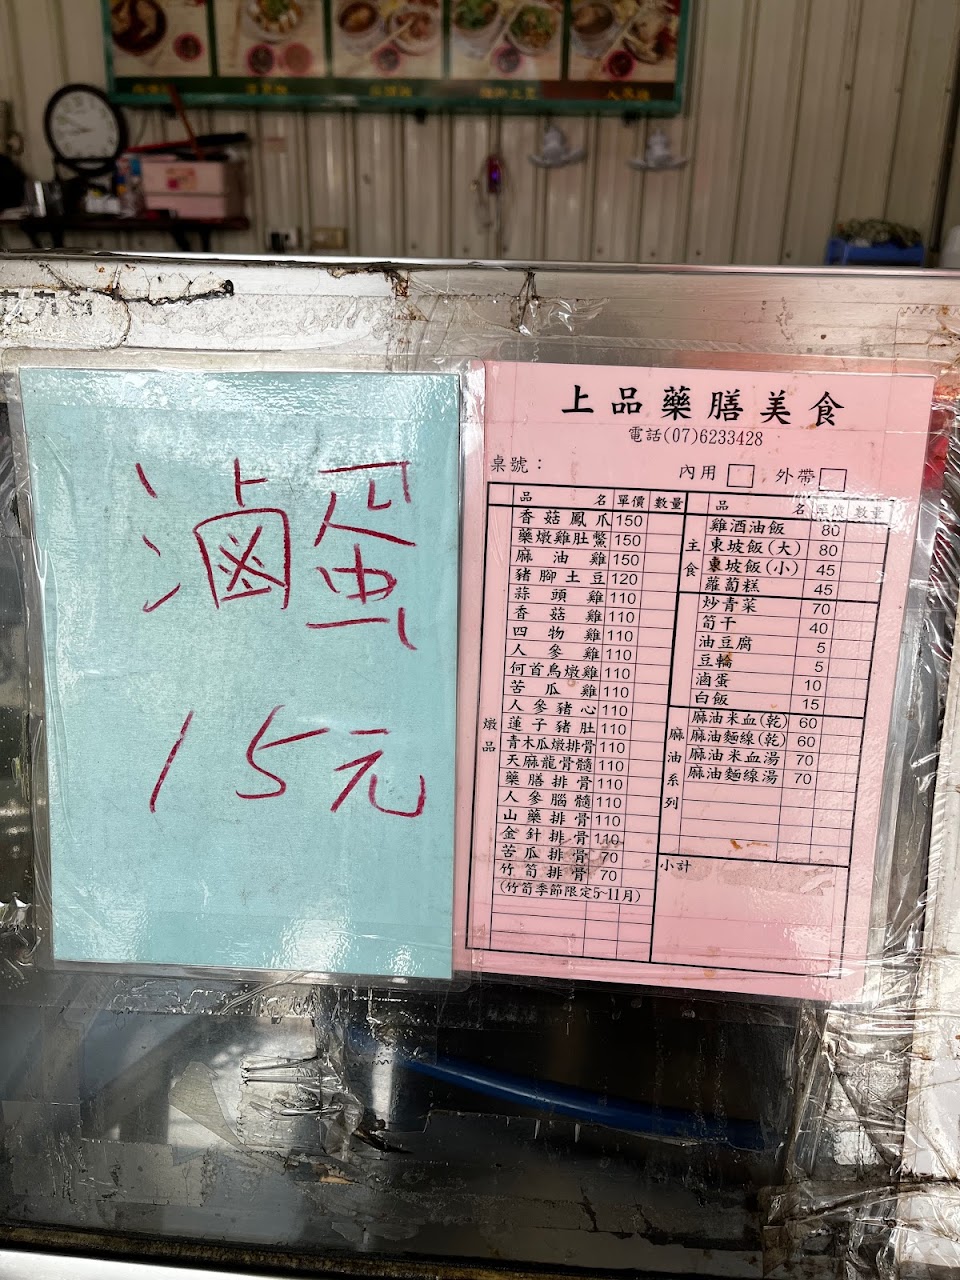 滷蛋
15元
上品藥膳美食
電話(07)6233428
桌號：
內用 外帶
品名 單價 數量
香菇鳳爪 150
藥燉雞肚鱉 150
麻油雞 150
豬腳土豆 120
蒜頭雞 110
香菇雞 110
四物雞 110
人參雞 110
何首烏燉雞 110
苦瓜雞 110
人參豬心 110
蓮子豬肚 110
青木瓜燉排骨 110
天麻龍骨髓 110
藥膳排骨 110
人參腦髓 110
山藥排骨 110
金針排骨 110
苦瓜排骨 70
竹筍排骨 70
(竹筍季節限定5~11月)
燉品
品名 單價 數量
主食
雞酒油飯 80
東坡飯(大) 80
東坡飯(小) 45
蘿蔔糕 45
炒青菜 70
筍干 40
油豆腐 5
豆輪 5
滷蛋 10
白飯 15
麻油系列
麻油米血(乾) 60
麻油麵線(乾) 60
麻油米血湯 70
麻油麵線湯 70
小計